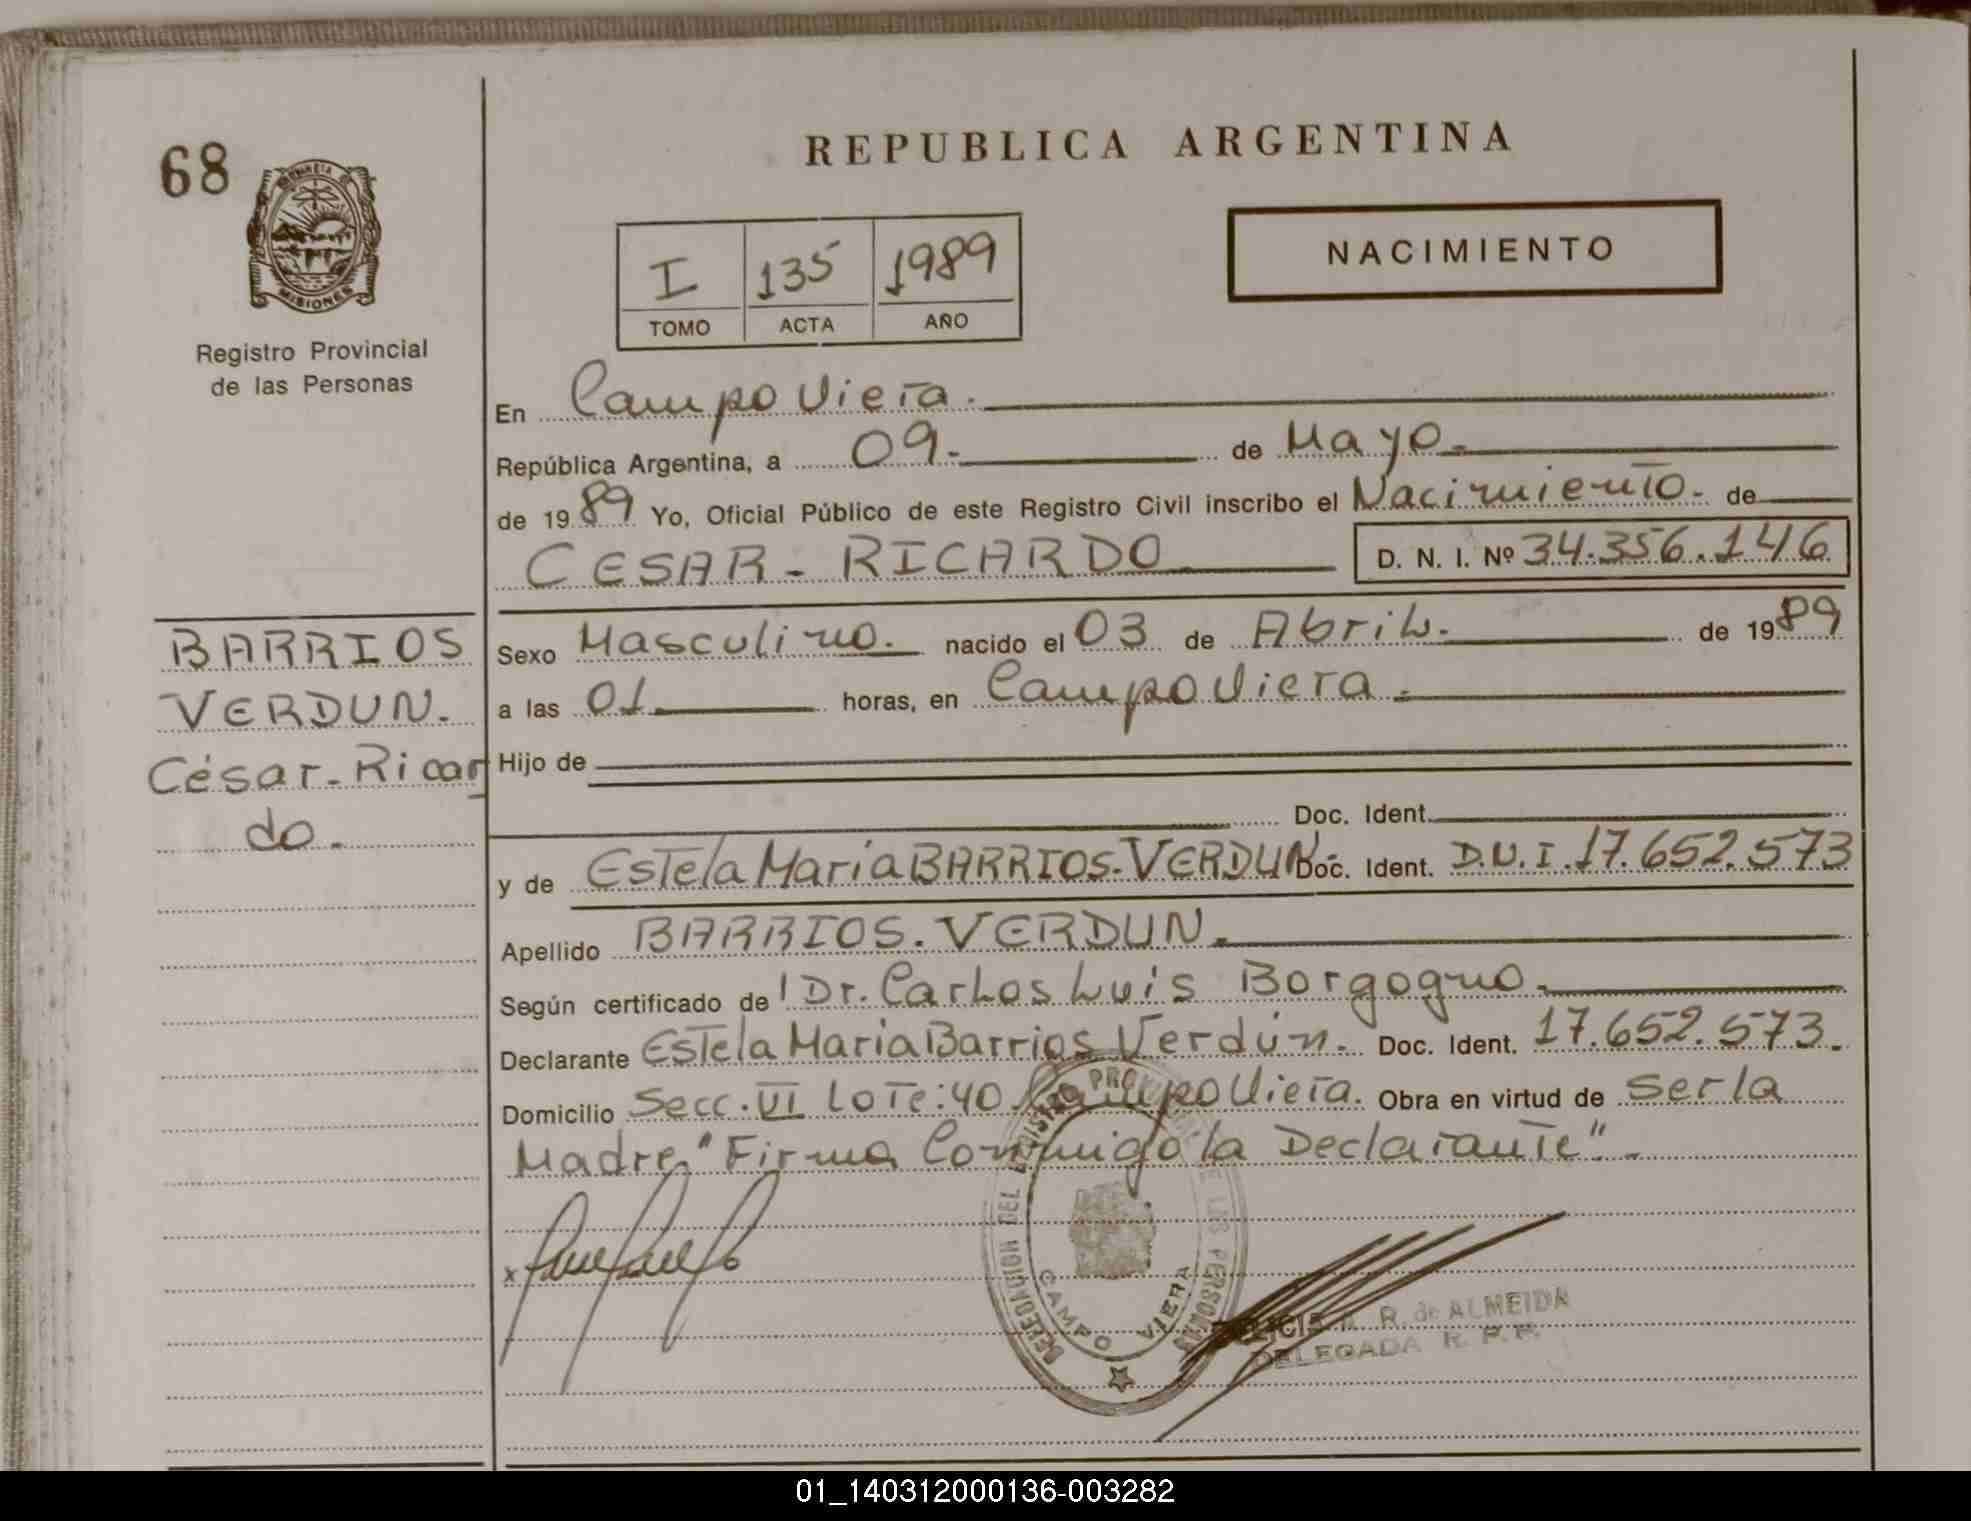 68
REPUBLICA ARGENTINA
MISIONES
Registro Provincial
de las Personas
I 135 1989
TOMO ACTA AÑO
NACIMIENTO
En Campo Viera.
República Argentina, a 09. de Mayo.
de 1989 Yo, Oficial Público de este Registro Civil inscribo el Nacimiento. de
CESAR - RICARDO D. N. I. Nº 34.356.146
BARRIOS
VERDUN.
César - Ricar
do.
Sexo Masculino. nacido el 03 de Abril. de 1989
a las 01 horas, en Campo Viera.
Hijo de
Doc. Ident.
y de Estela Maria BARRIOS. VERDUN. Doc. Ident. D.N.I. 17.652.573
Apellido BARRIOS. VERDUN.
Según certificado de Dr. Carlos Luis Borgogno.
Declarante Estela Maria Barrios Verdún. Doc. Ident. 17.652.573.
Domicilio Secc. VI Lote: 40 Campo Viera. Obra en virtud de Ser la
Madre, "Firma Conmigo la Declarante".
x
DELEGACION DEL REGISTRO PROVINCIAL DE LAS PERSONAS
CAMPO VIERA
R. de ALMEIDA
DELEGADA R. P. P.
01_140312000136-003282